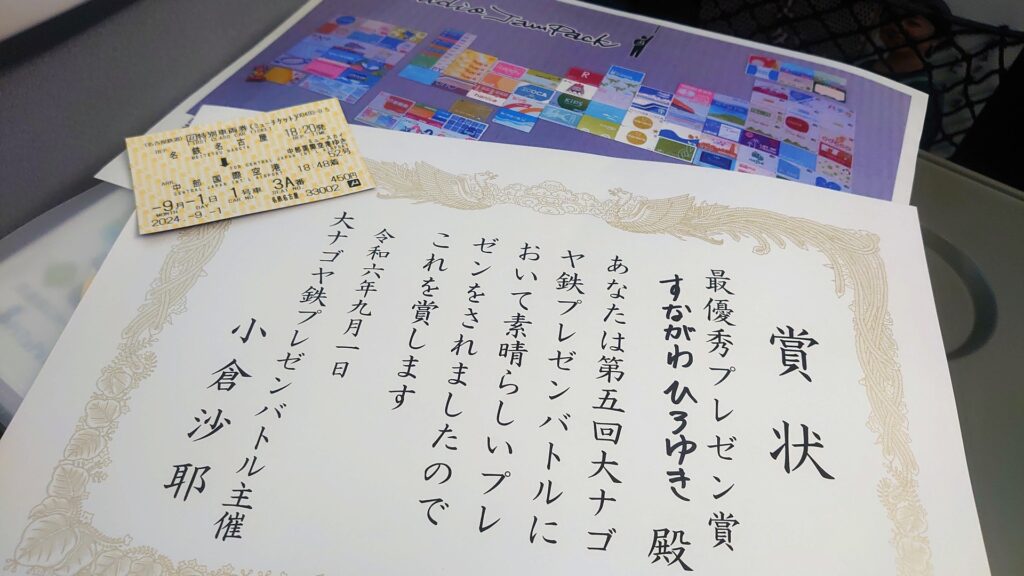 賞状
最優秀プレゼン賞
すながわ ひろゆき 殿
あなたは第五回大ナゴ
ヤ鉄プレゼンバトルに
おいて素晴らしいプレ
ゼンをされましたので
これを賞します
令和六年九月一日
大ナゴヤ鉄プレゼンバトル主催
小倉沙耶
18:20発
名鉄名古屋
中部国際空港
18:48着
-9月-1日
1号車
3A番
450円
MONTH
DAY
CAR NO.
2024.-9.-1
33002
JamPack
ICOCA
KIDS
R